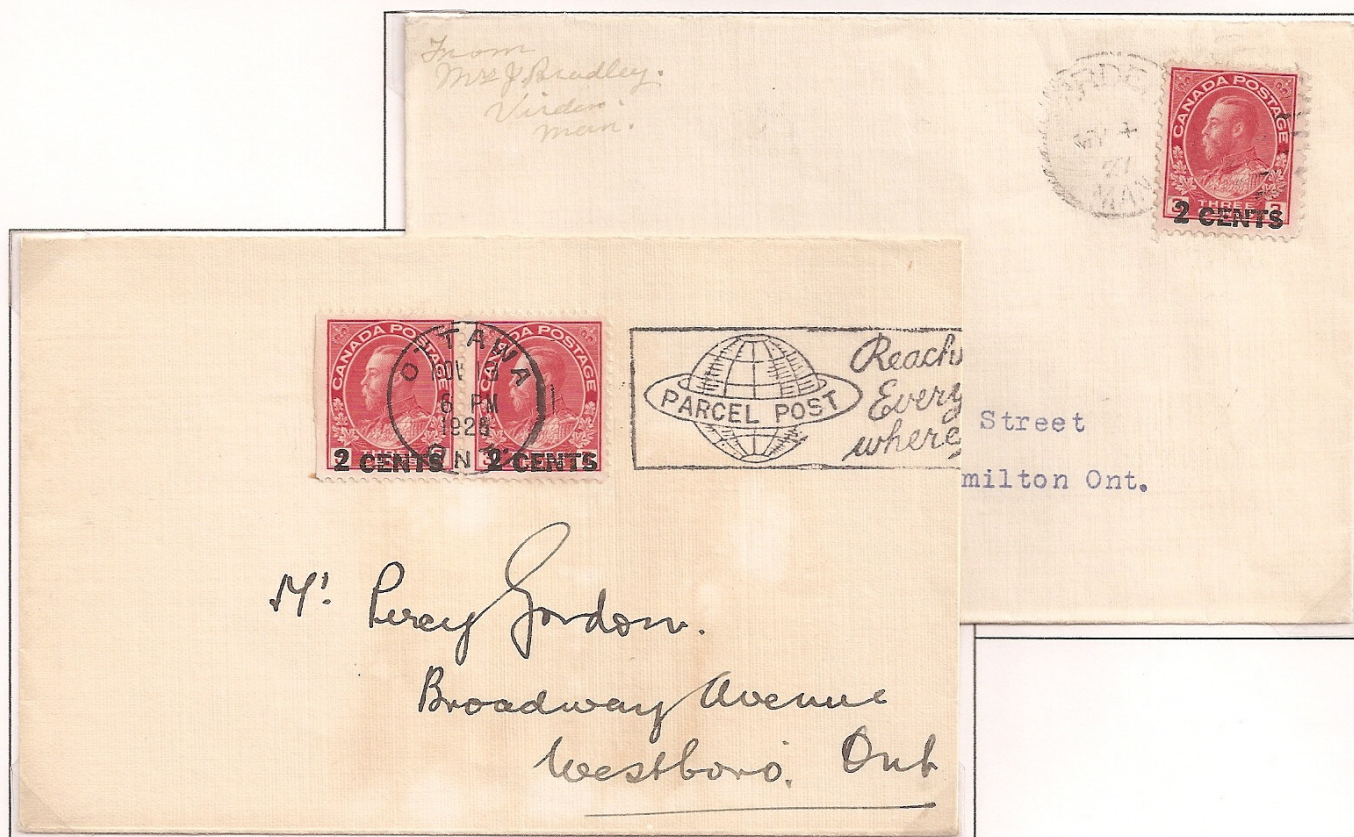 From
Mrs J. Bradley.
Virden.
Man.
MY 4
27
MAN
CANADA POSTAGE
THREE
2 CENTS
Street
milton Ont.
CANADA POSTAGE
2 CENTS
CANADA POSTAGE
2 CENTS
OTTAWA
6 PM
ONT
PARCEL POST
Reach
Every
where
Mr. Percy Gordon.
Broadway Avenue
Westboro. Ont